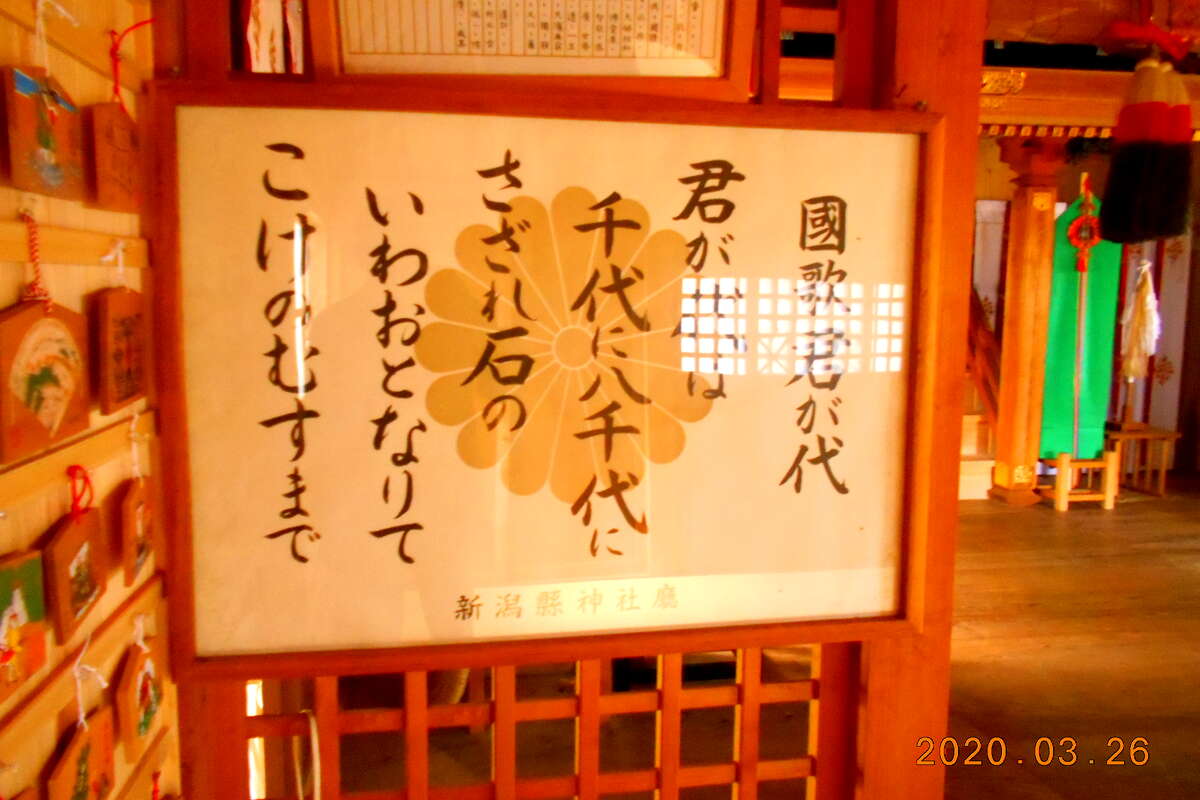 國歌君が代
君が代は
千代に八千代に
さざれ石の
いわおとなりて
こけのむすまで
新潟縣神社廳
2020.03.26